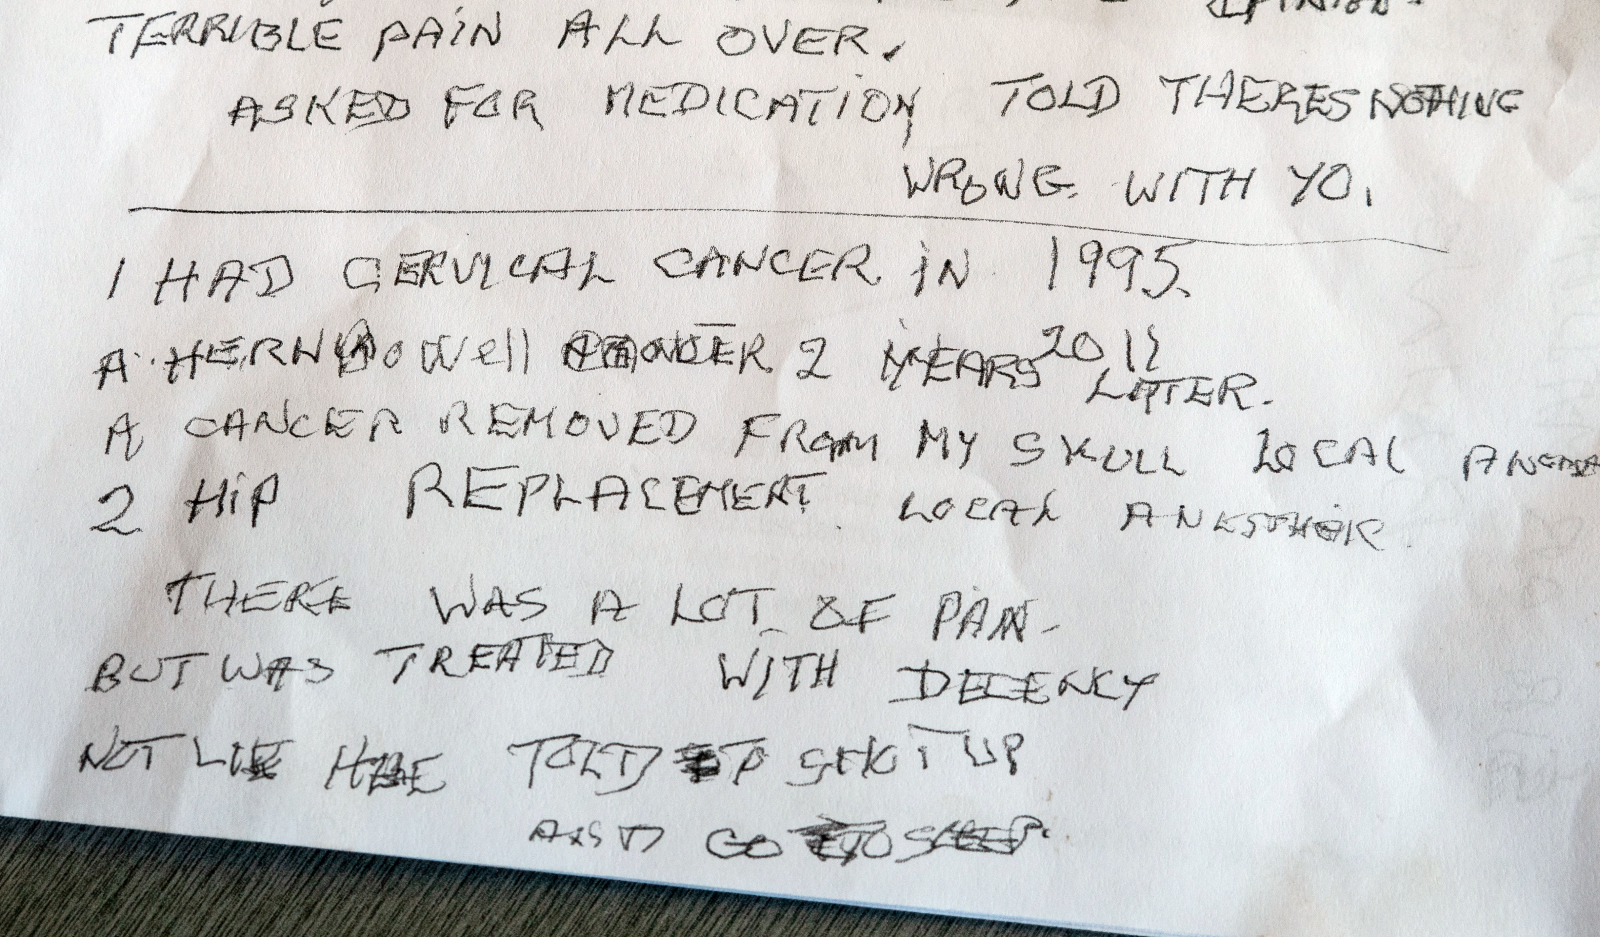 OPINION.
TERRIBLE PAIN ALL OVER.
ASKED FOR MEDICATION TOLD THERES NOTHING
WRONG. WITH YO.
I HAD CERVICAL CANCER. IN 1995.
A HERNIA Well 2 YEARS 2011
LATER.
A CANCER REMOVED FROM MY SKULL LOCAL
2 HIP REPLACEMENT. LOCAL ANESTHER.
THERE WAS A LOT OF PAIN-
BUT WAS TREATED WITH DECENCY
NOT LIKE HERE TOLD TO SHUT UP
AND GO TO SLEEP.